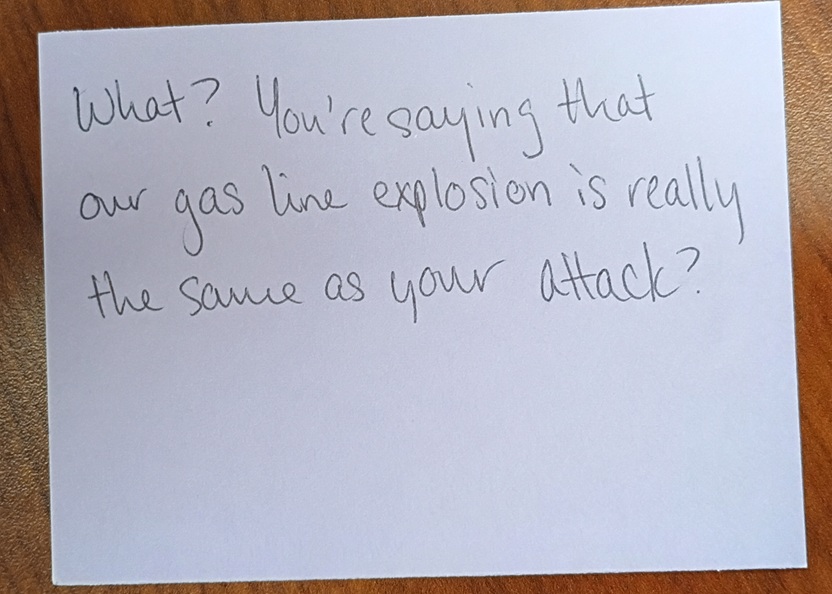 What? You're saying that
our gas line explosion is really
the same as your attack?